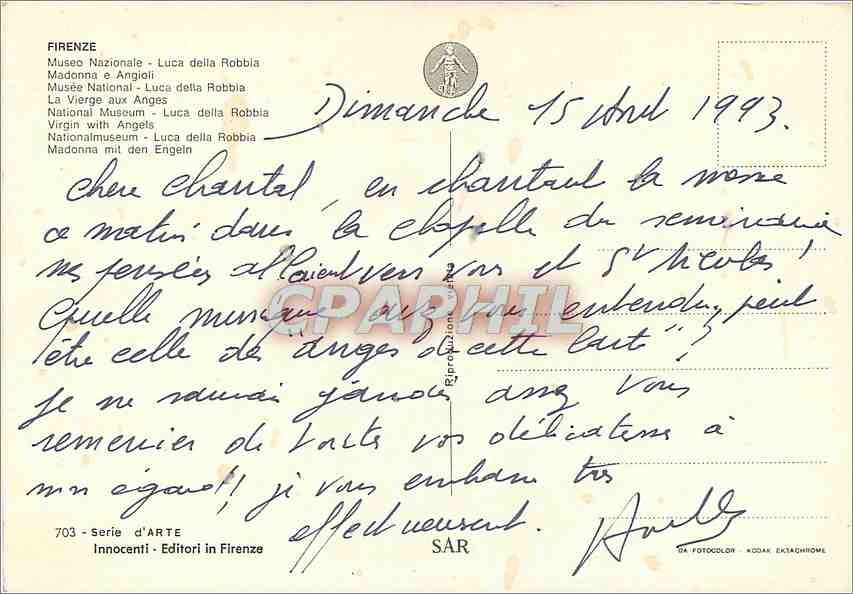 FIRENZE
Museo Nazionale - Luca della Robbia
Madonna e Angioli
Musée National - Luca della Robbia
La Vierge aux Anges
National Museum - Luca della Robbia
Virgin with Angels
Nationalmuseum - Luca della Robbia
Madonna mit den Engeln
Dimanche 15 1993.
chère Chantal, en chantant la messe
ce matin dans la chapelle du seminaire
mes pensées allaient vers vous et St Nicolas!
Quelle musique avez vous entendu, peut
être celle des "anges de cette carte"?
je ne saurais jamais assez vous
remercier de toutes vos délicatesses à
mon égard!! je vous embrasse très
affectueusement.
CPAPHIL
Riproduzione vietata
703 - Serie d'ARTE
Innocenti - Editori in Firenze
SAR
DA FOTOCOLOR - KODAK EKTACHROME